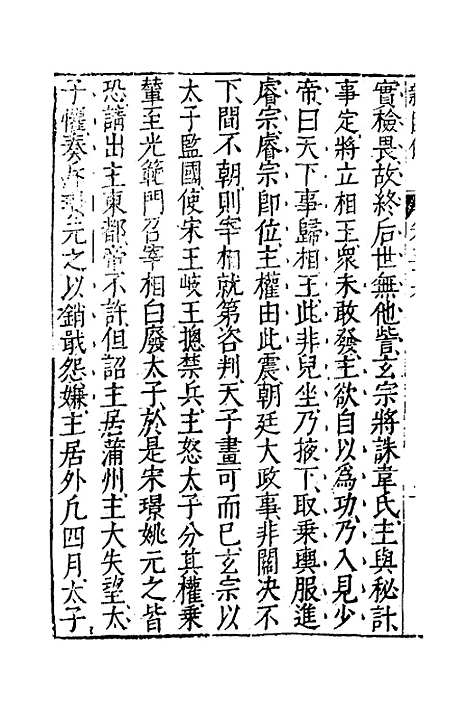 實檢畏故終后世無他訾玄宗將誅韋氏主與秘計
事定將立相王衆未敢發主欲自以爲功乃入見少
帝曰天下事歸相王此非兒坐乃掖下取乘輿服進
睿宗睿宗卽位主權由此震朝廷大政事非關决不
下間不朝則宰相就第咨判天子畫可而巳玄宗以
太子監國使宋王岐王摠禁兵主怒太子分其權乗
輦至光範門召宰相白廢太子於是宋璟姚元之皆
恐請出主東都帝不許但詔主居蒲州主大失望太
子懼奏斥璟元之以銷戢怨嫌主居外凡四月太子